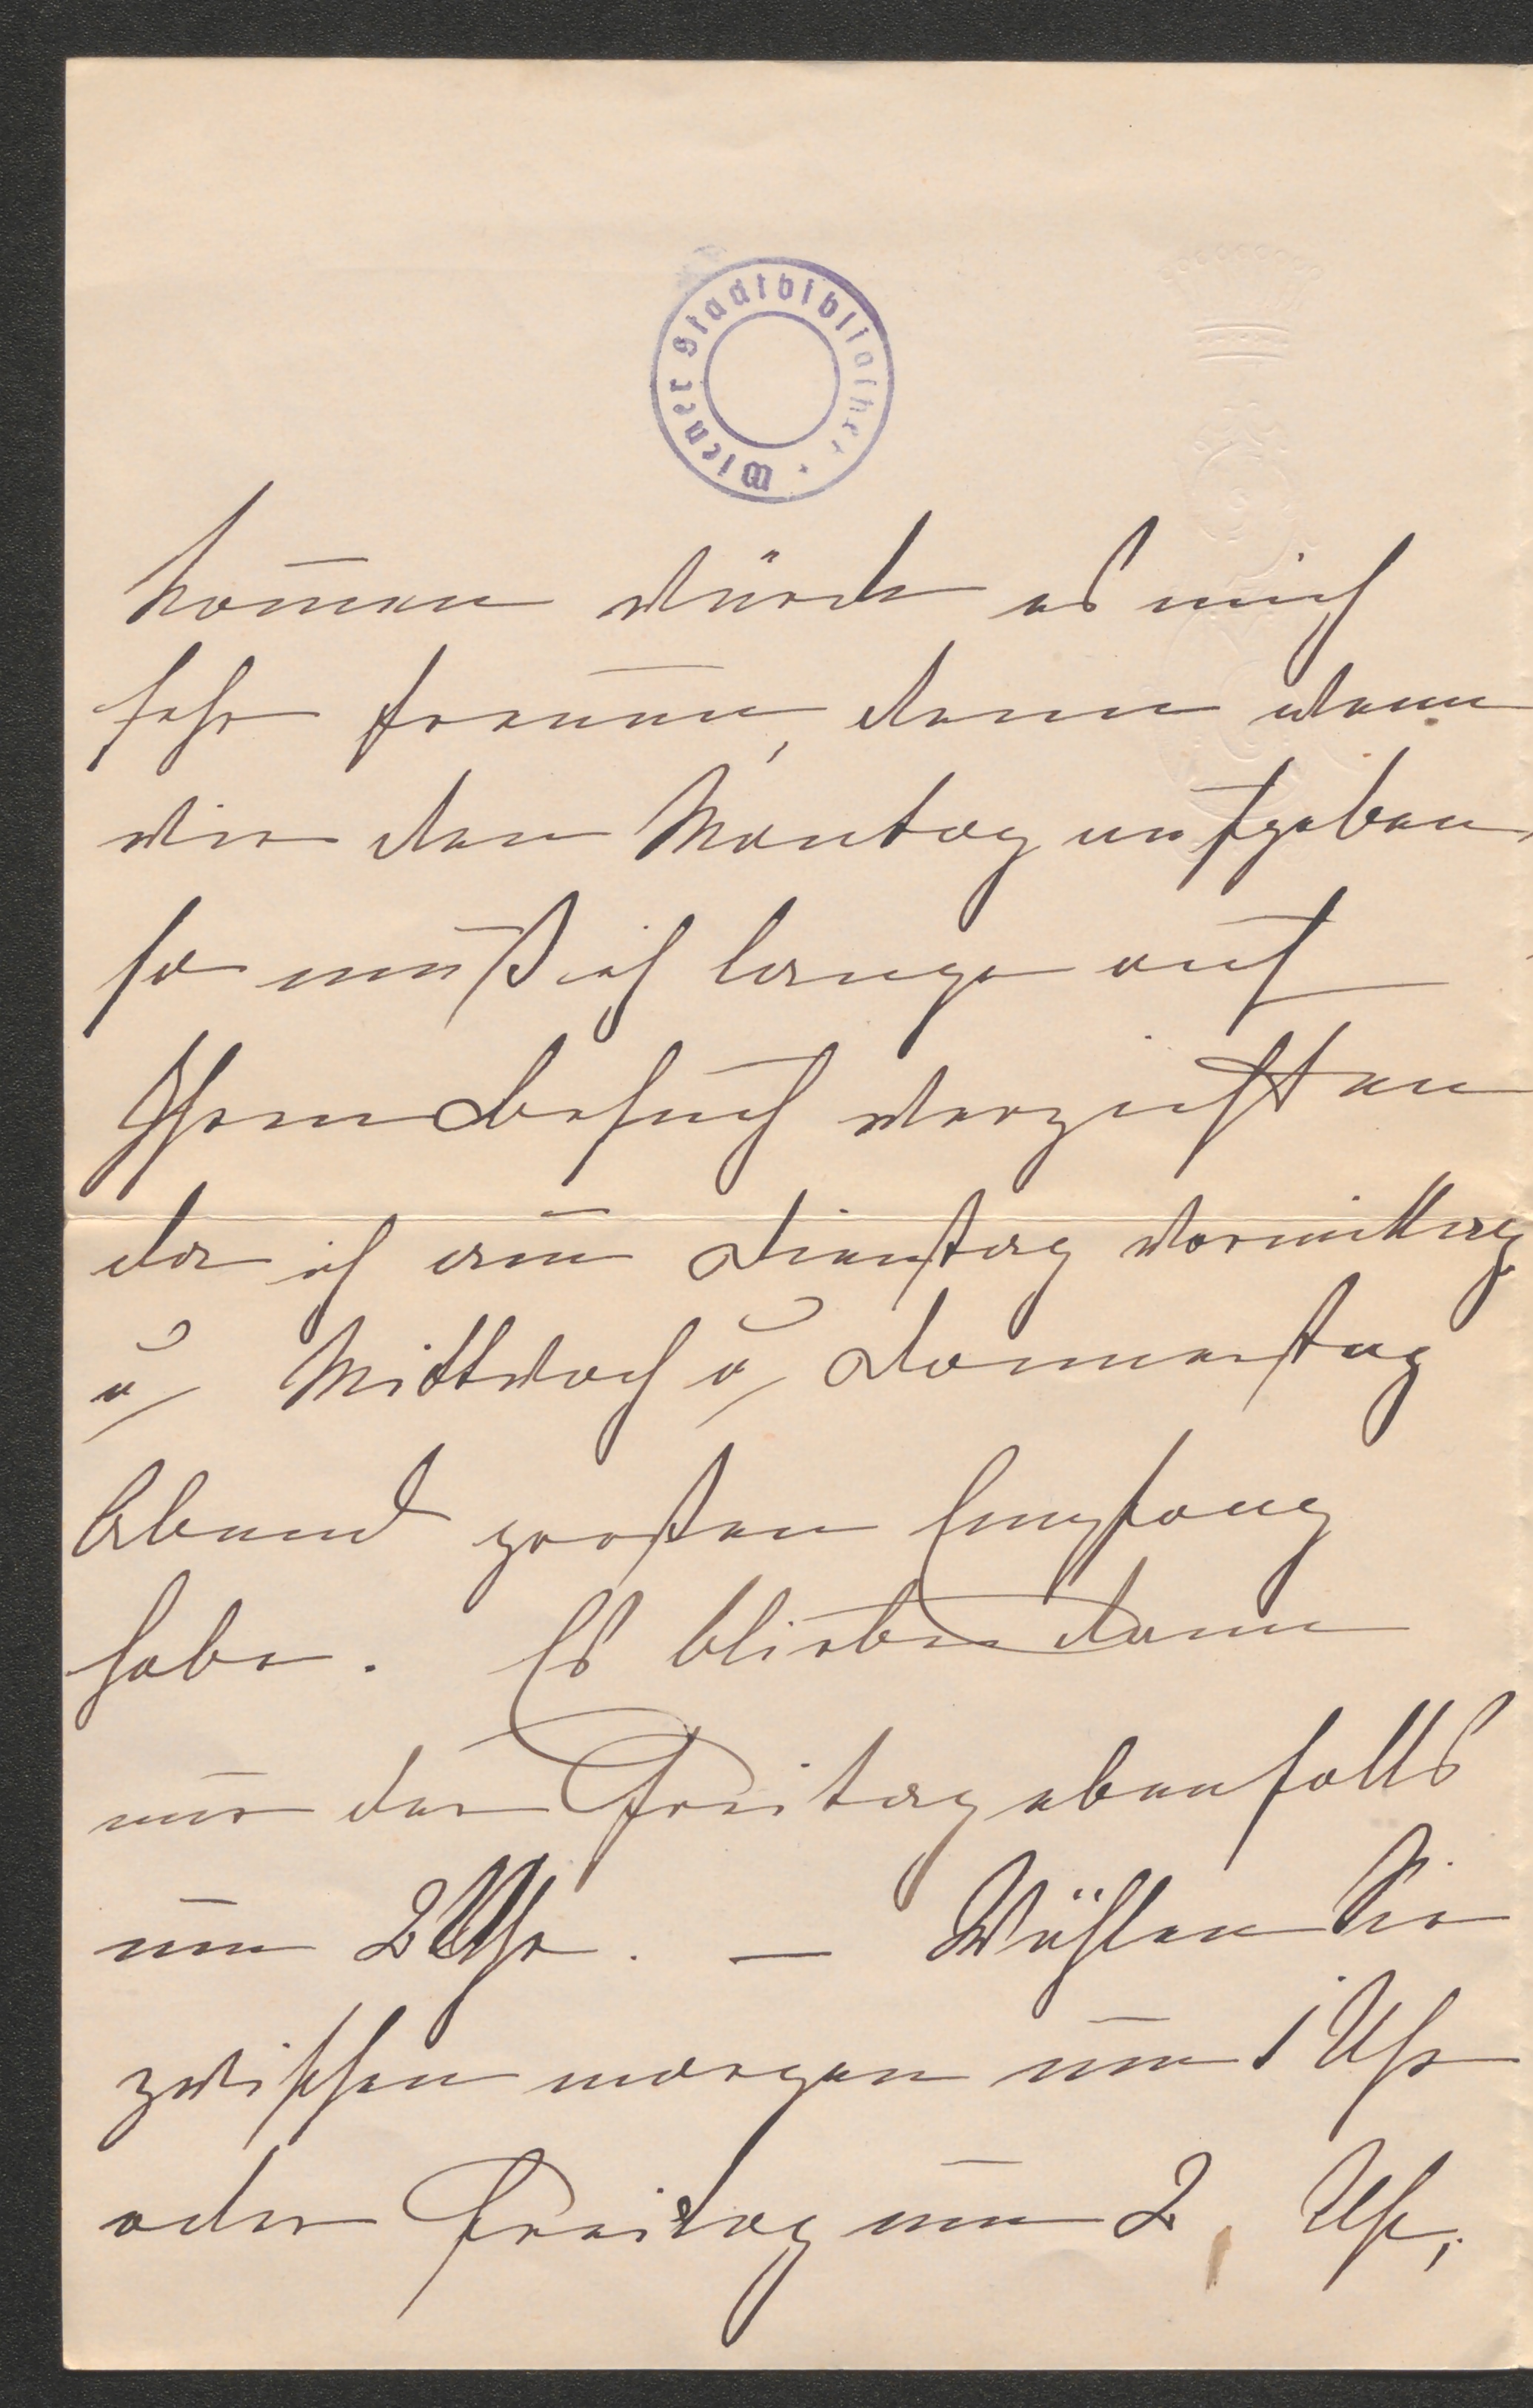 Wiener Stadtbibliothek
kom̄en würde es mich
sehr freuen, denn wenn
wir den Montag aufgeben,
so muß ich lange auf
Ihren Besuch verzichten
da ich am Dienstag Vormittag
u Mittwoch u Donnerstag
Abend großen Empfang
habe. Es bliebe dann
nur der Freitag ebenfalls
um 2 Uhr. — Wählen Sie
zwischen morgen um 1 Uhr
oder Freitag um 2 Uhr,